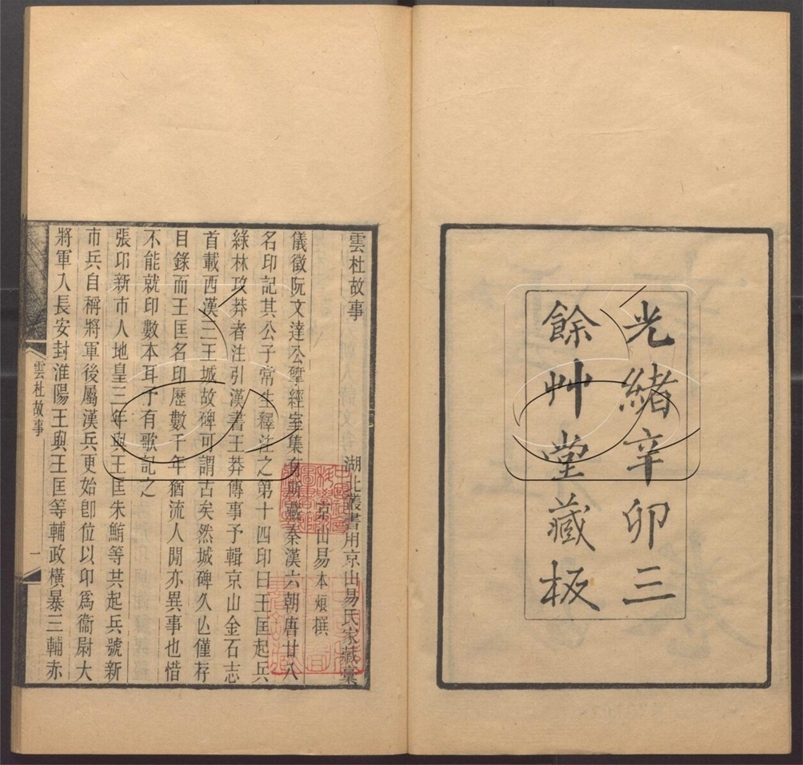 光緒辛卯三
餘艸堂藏板
雲杜故事
湖北叢書用京山易氏家藏稾
京山易本烺撰
儀徵阮文達公揅經室集有所藏秦漢六朝唐廿八
名印記其公子常生釋注之第十四印曰王匡起兵
綠林攻莽者注引漢書王莽傳事予輯京山金石志
首載西漢三王城故碑可謂古矣然城碑久亾僅存
目錄而王匡名印歷數千年猶流人閒亦異事也惜
不能就印數本耳予有歌記之
張卭新市人地皇三年與王匡朱鮪等共起兵號新
市兵自稱將軍後屬漢兵更始卽位以卭爲衞尉大
將軍入長安封淮陽王與王匡等輔政橫暴三輔赤
雲杜故事
一